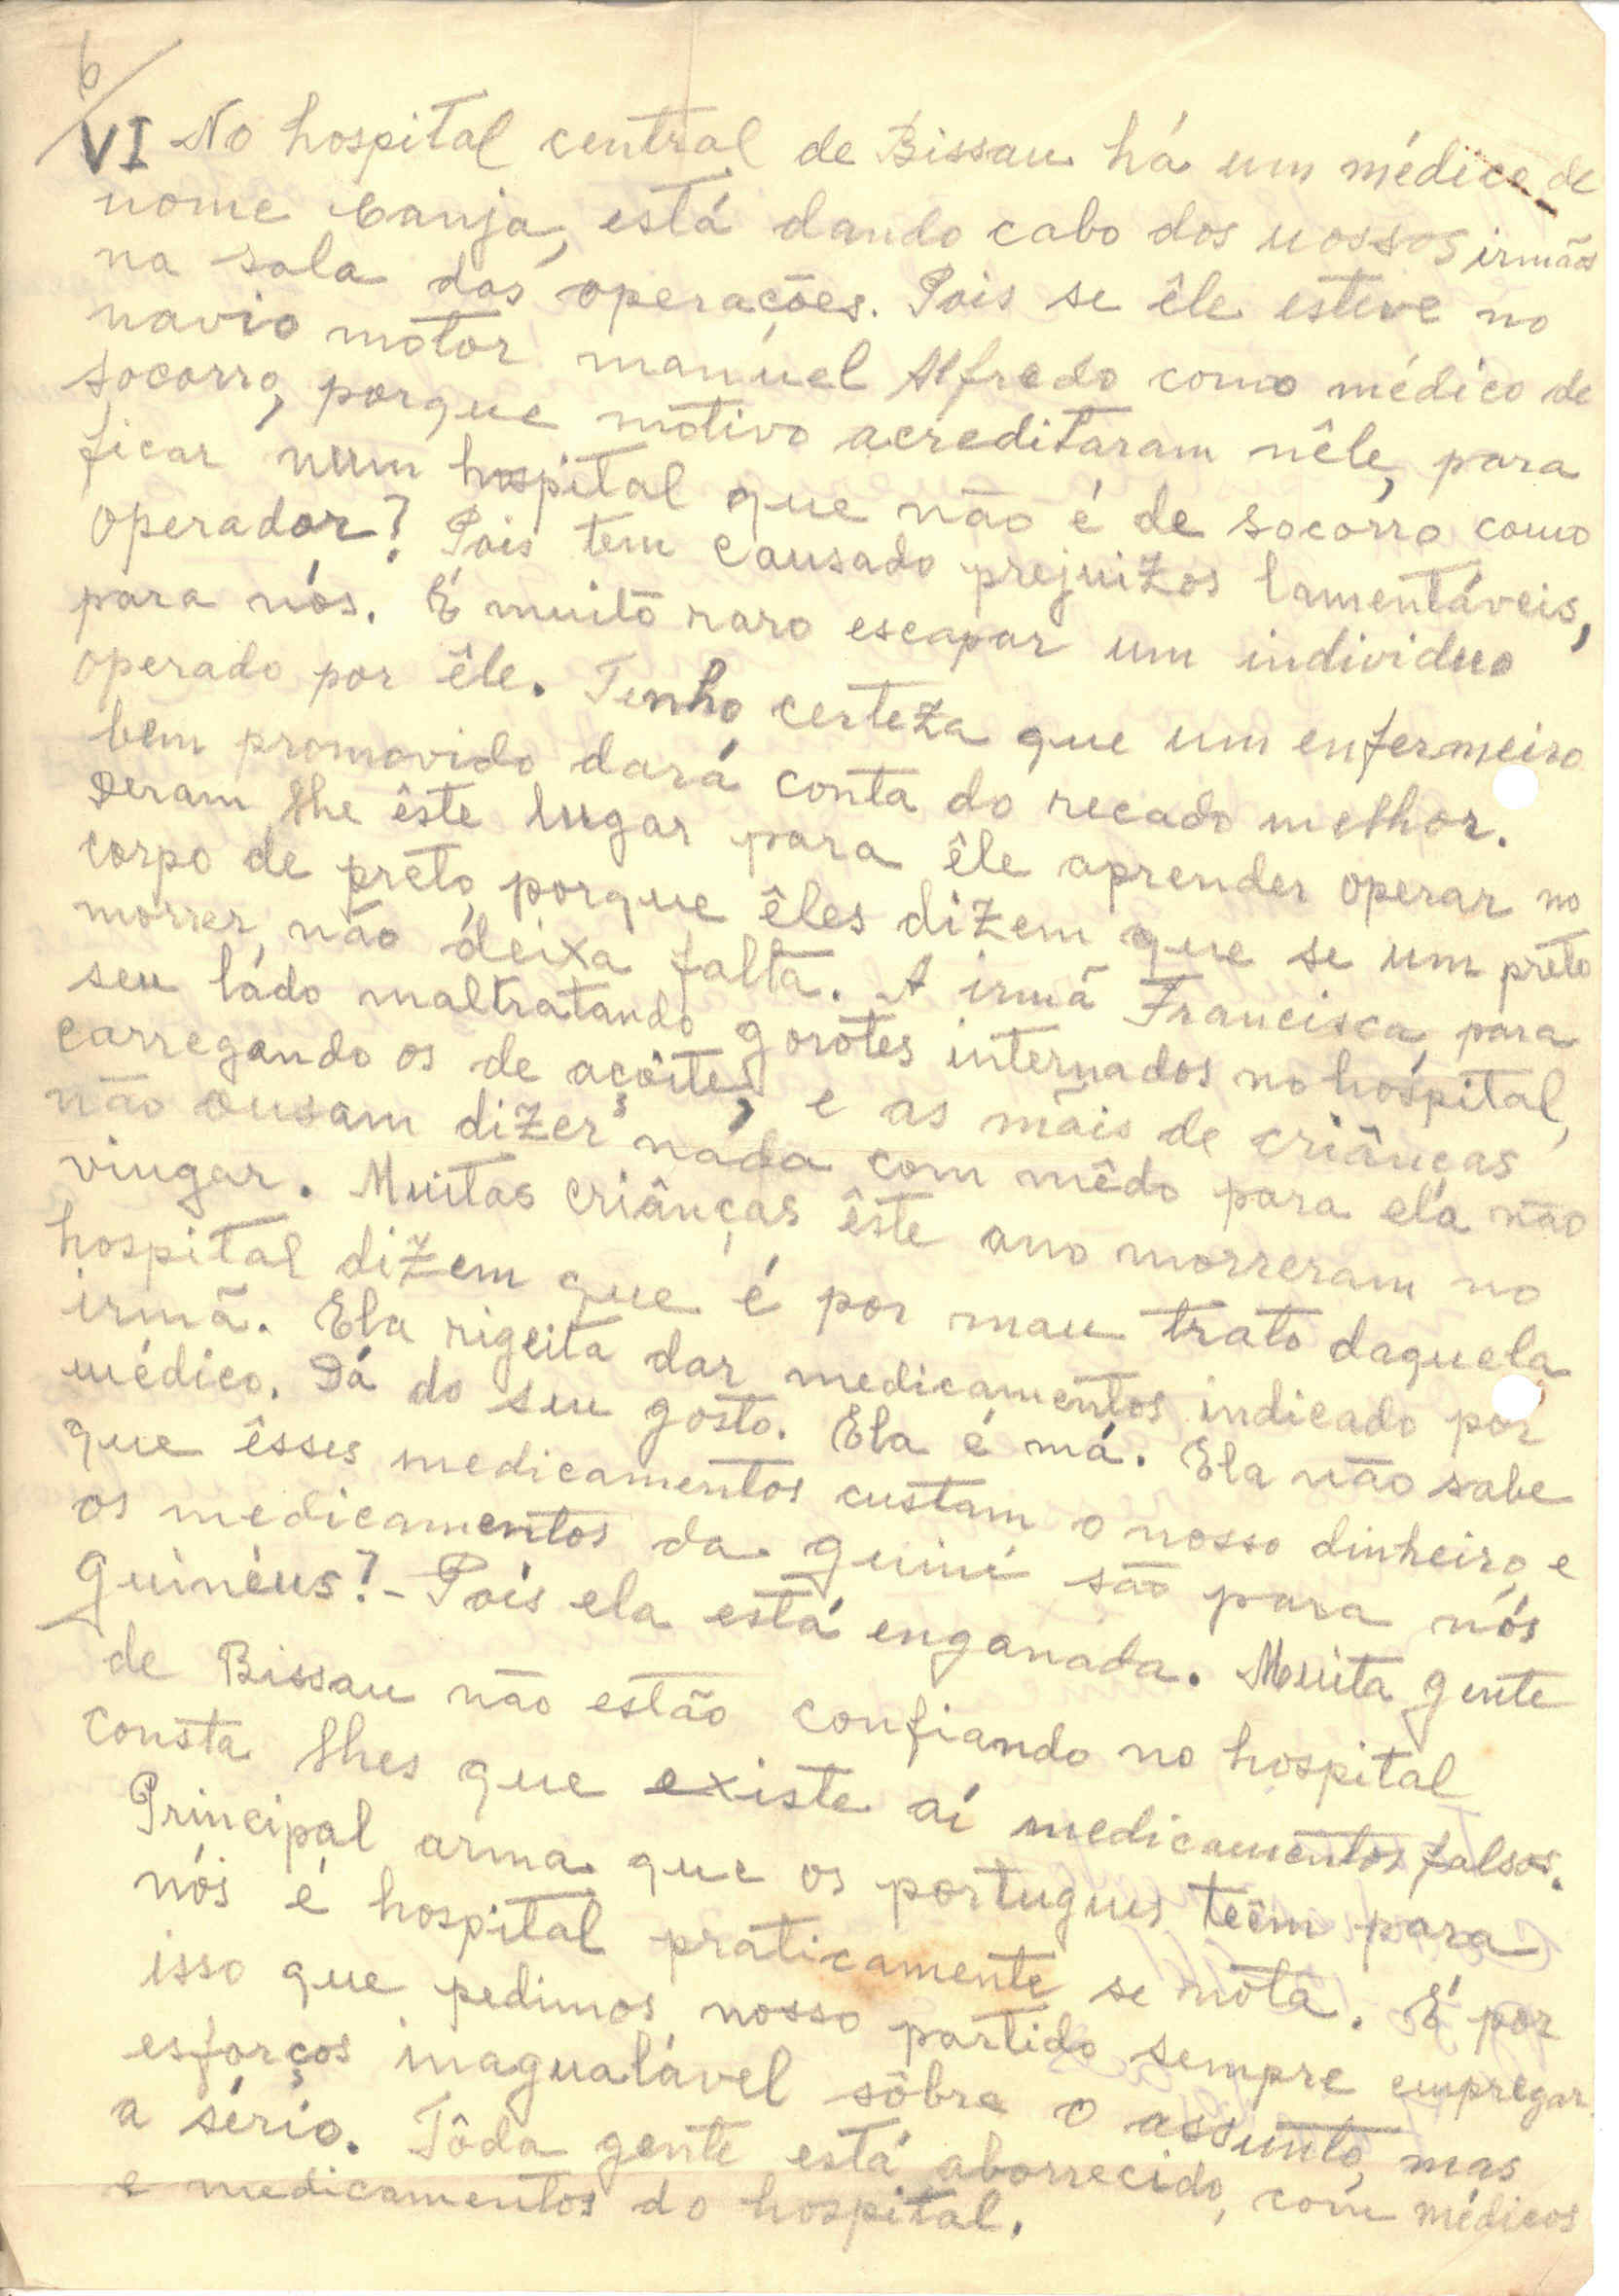 6/
VI No hospital central de Bissau há um médico de
nome Canja, está dando cabo dos nossos irmãos
na sala das operações. Pois se êle esteve no
navio motor manúel Alfredo como médico de
socorro, porque motivo acreditaram nêle, para
ficar num hospital que não é de socorro como
operador? Pois tem causado prejuizos lamentáveis,
para nós. É muito raro escapar um individuo
operado por êle. Tenho certeza que um enfermeiro
bem promovido dará conta do recado melhor.
Deram lhe êste lugar para êle aprender operar no
corpo de preto, porque êles dizem que se um preto
morrer, não deixa falta. A irmã Francisca, para
seu lado maltratando gorotes internados no hospital,
carregando os de açôites, e as mãis de criânças
não ousam dizer nada com mêdo para ela não
vingar. Muitas criânças êste ano morreram no
hospital dizem que é por mau trato daquela
irmã. Ela rigeita dar medicamentos indicado por
médico. Dá do seu gosto. Ela é má. Ela não sabe
que êsses medicamentos custam o nosso dinheiro, e
os medicamentos da guiné são para nós
Guinéus? - Pois ela está enganada. Muita gente
de Bissau não estão confiando no hospital
consta lhes que existe aí medicamentos falsos.
Principal arma que os portugues teêm para
nós é hospital praticamente se nota. É por
isso que pedimos nosso partido sempre empregar
esforços inagualável sôbre o assunto, mas
a sério. Tôda gente está aborrecido, com médicos
e medicamentos do hospital.